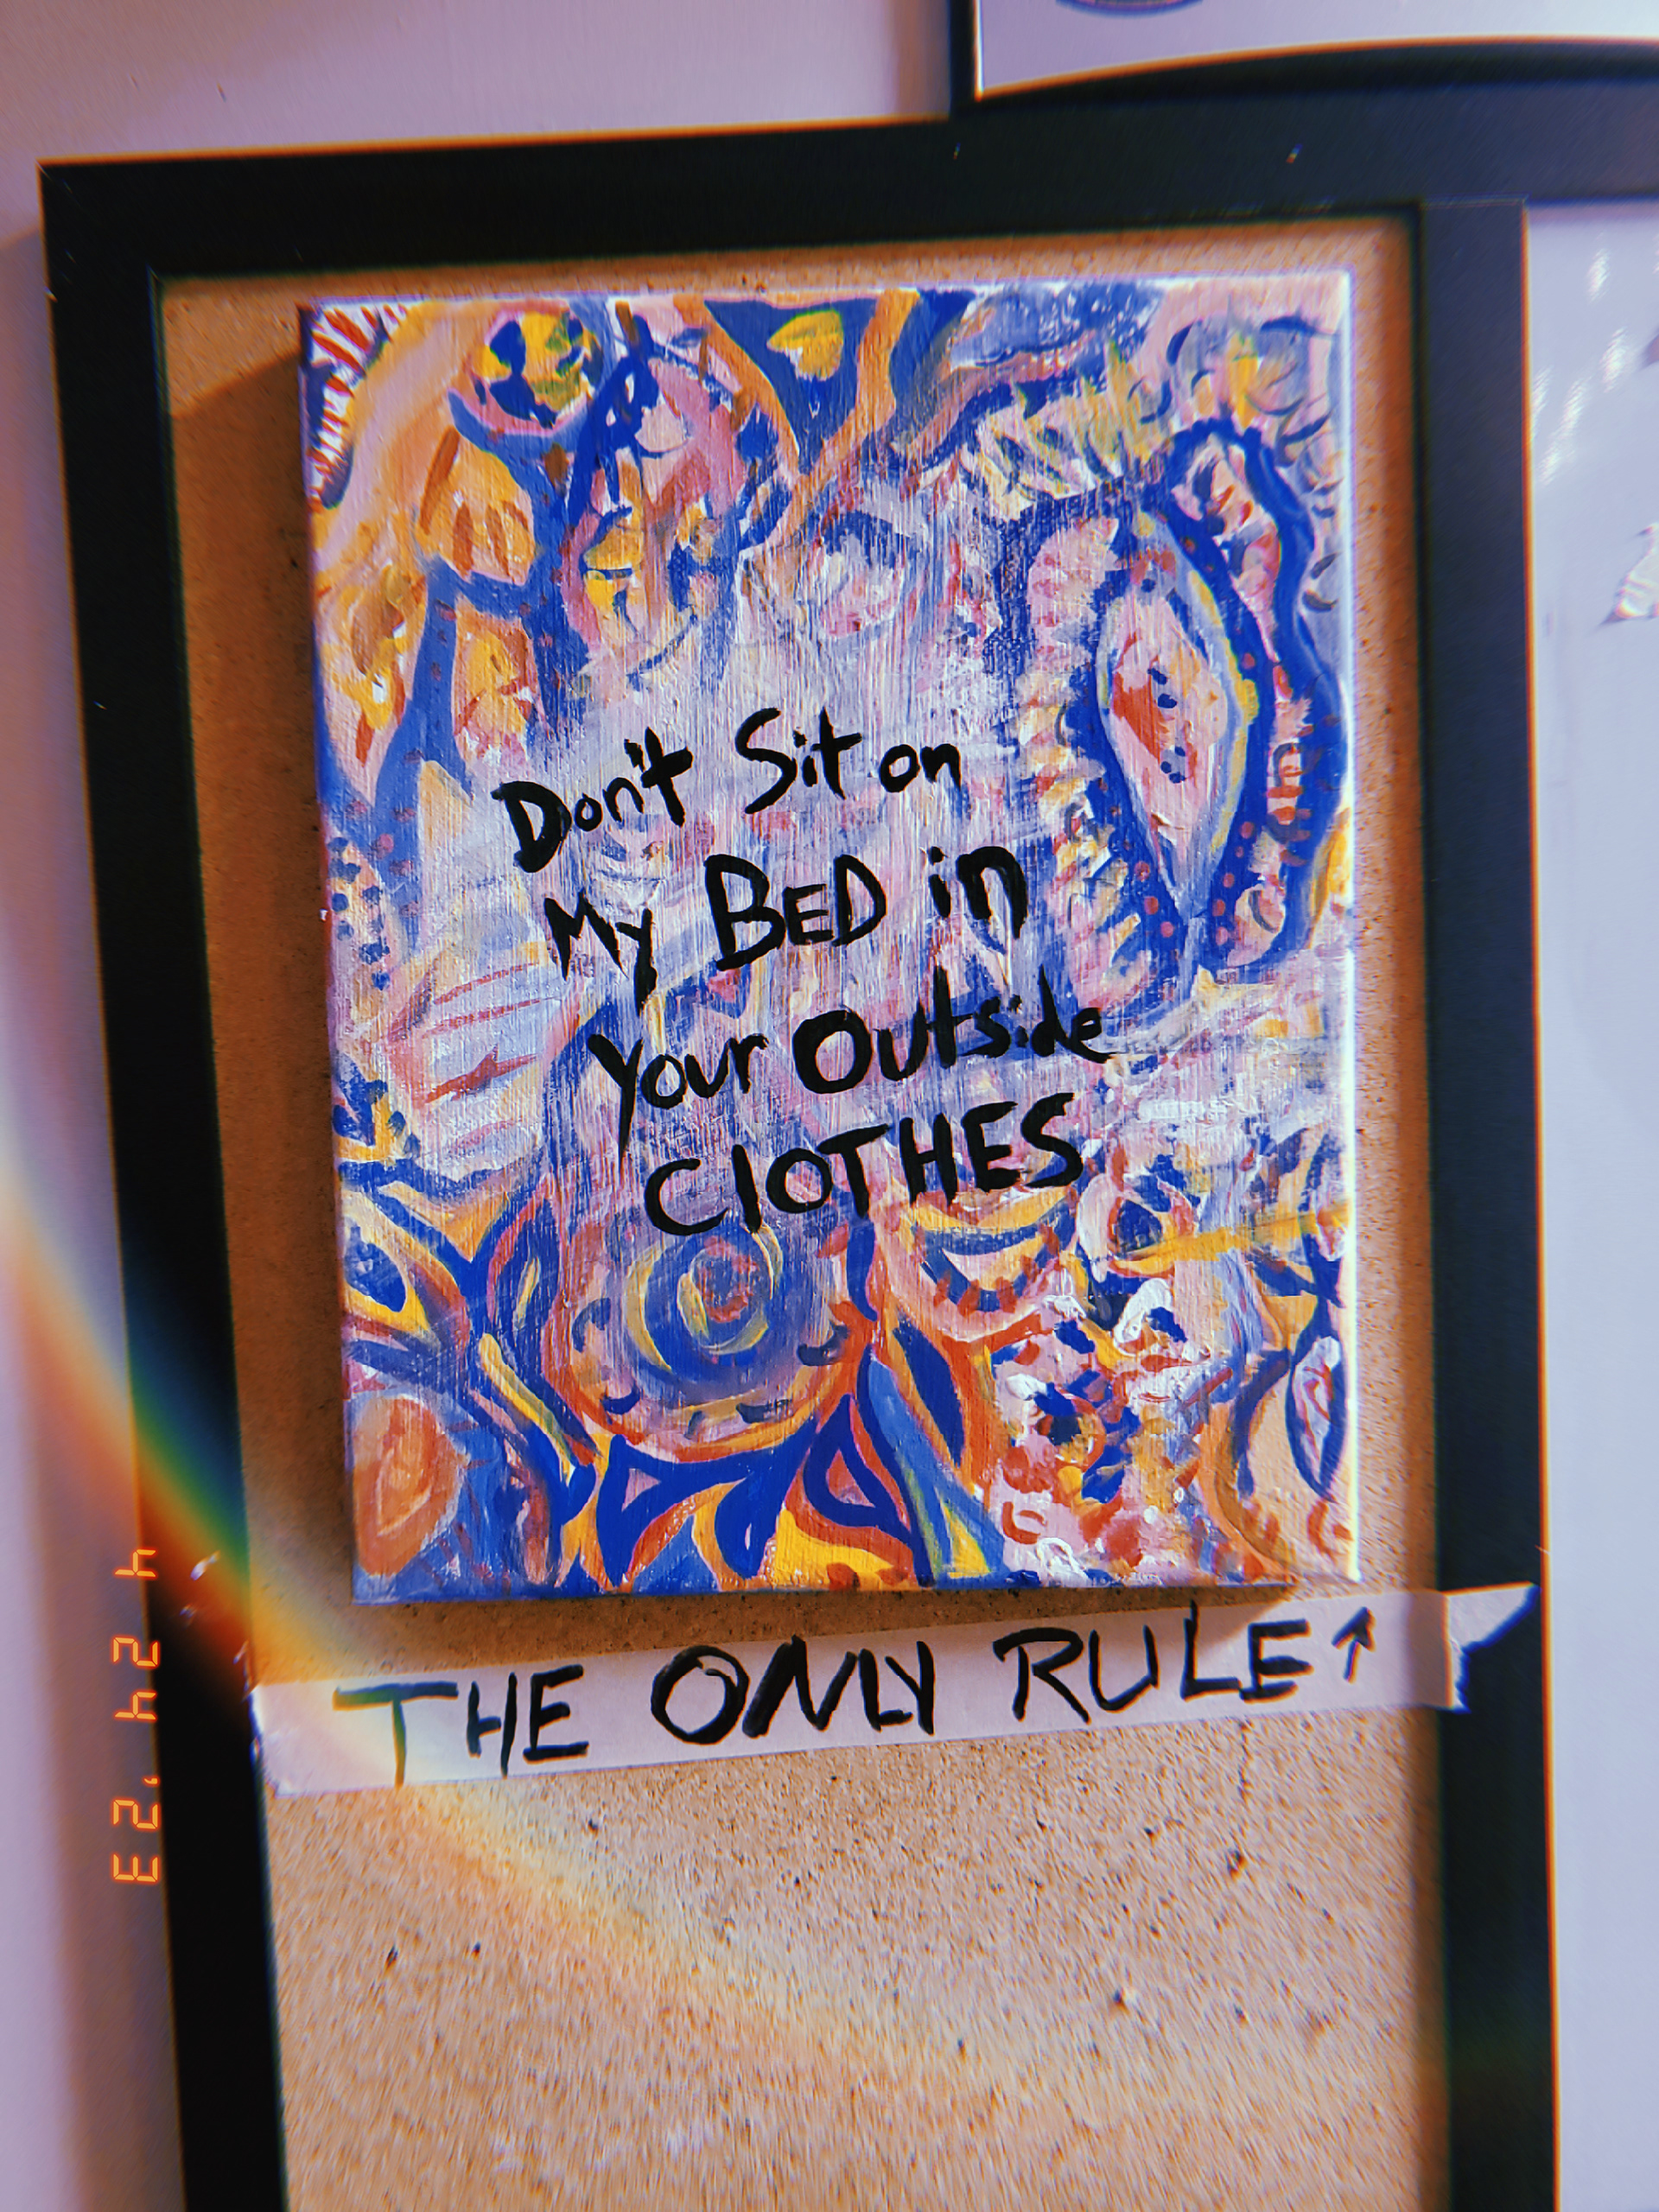 Don't Sit on
My BED in
Your Outside
ClOTHES
THE ONLY RULE ↑
4 24 '23